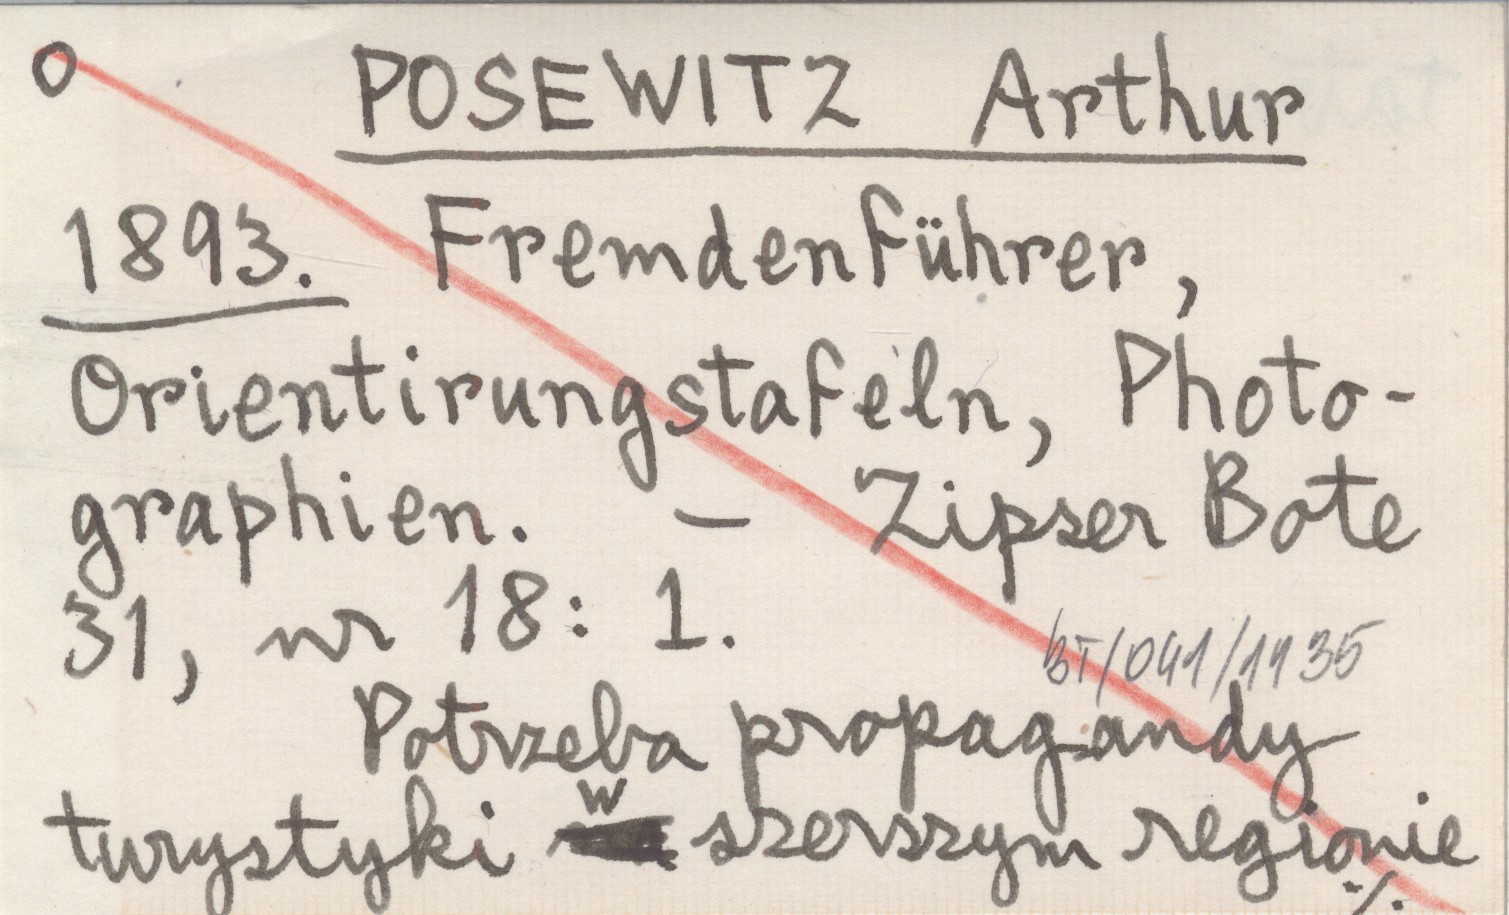 O POSEWITZ Arthur
1893. Fremdenführer,
Orientirungstafeln, Photo-
graphien. — Zipser Bote
31, nr 18: 1.
BT/041/1135
Potrzeba propagandy
turystyki w szerszym regionie
./.